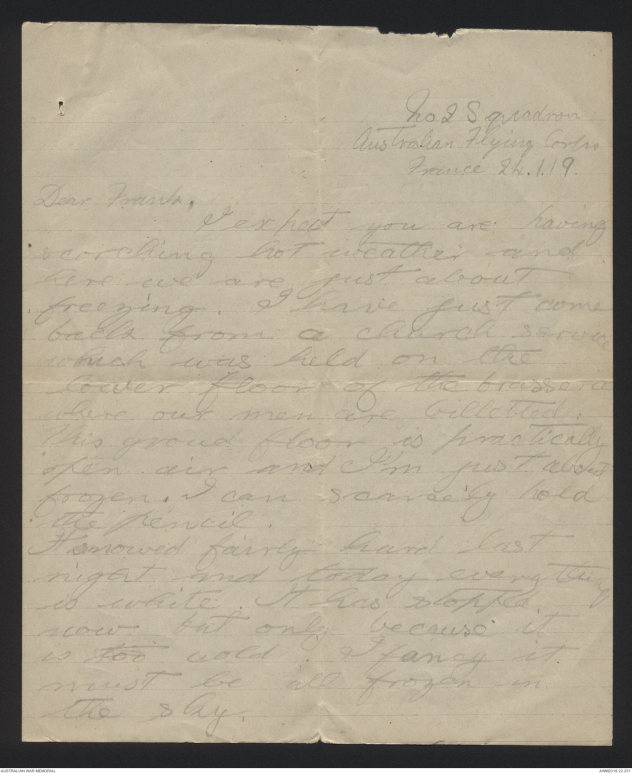 No 2 Squadron
Australian Flying Corps
France 24.1.19.
Dear Frank,
I expect you are having
scorching hot weather and
here we are just about
freezing. I have just come
back from a church service
which was held on the
lower floor of the brasserie
where our men are billetted.
This groud floor is practically
open air and I'm just about
frozen. I can scarcely hold
the pencil.
It snowed fairly hard last
night and today everything
is white. It has stopped
now but only because it
is too cold. I fancy it
must be all frozen in
the sky.
AUSTRALIAN WAR MEMORIAL